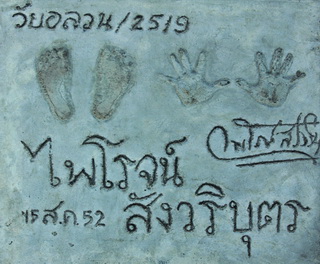 วัยอลวน/2519
ไพโรจน์
15 ส.ค. 52 สังวริบุตร